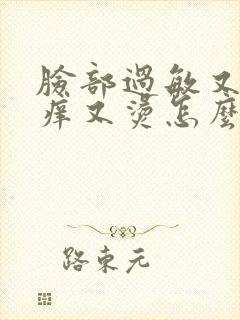 臉部過敏又
癢又燙怎麼
路東元